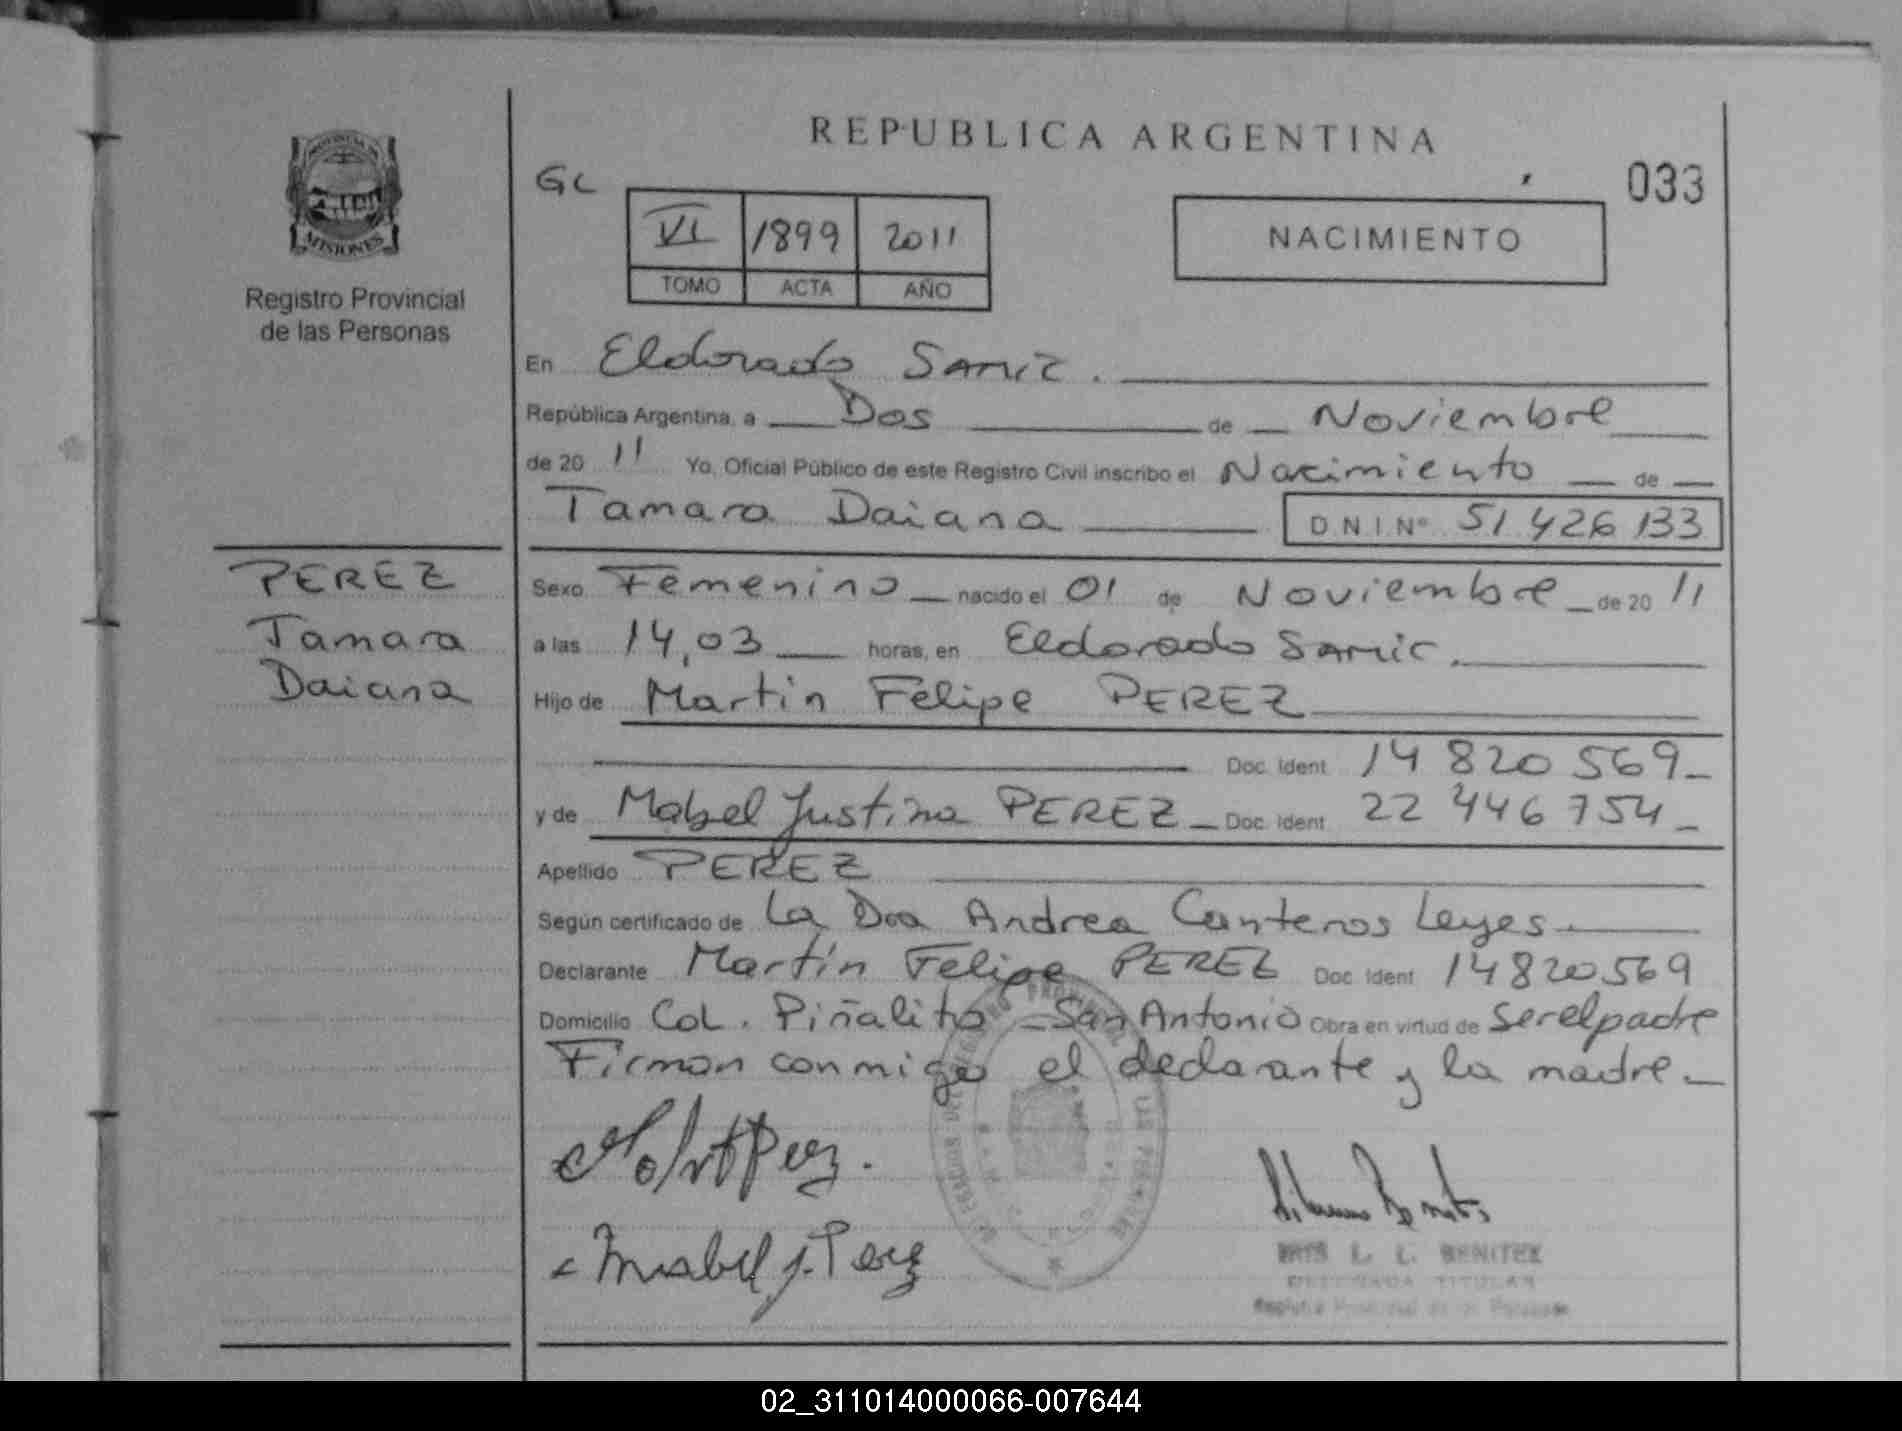 REPUBLICA ARGENTINA
033
PROVINCIA DE
MISIONES
Registro Provincial
de las Personas
GC
VI 1899 2011
TOMO ACTA AÑO
NACIMIENTO
En Eldorado SAMIC.
República Argentina, a Dos de Noviembre
de 20 11 Yo, Oficial Público de este Registro Civil inscribo el Nacimiento de
Tamara Daiana D.N.I.Nº 51 426 133
PEREZ
Tamara
Daiana
Sexo Femenino nacido el 01 de Noviembre de 20 11
a las 14,03 horas, en Eldorado SAMIC.
Hijo de Martin Felipe PEREZ
Doc. Ident. 14 820 569
y de Mabel Justina PEREZ Doc. Ident. 22 446 754
Apellido PEREZ
Según certificado de La Dra Andrea Canteros Leyes
Declarante Martin Felipe PEREZ Doc. Ident. 14820569
Domicilio Col. Piñalito - San Antonio Obra en virtud de Ser el padre
Firman conmigo el declarante y la madre
Mabel J. Perez
L. L. BENITEZ
TITULAR
02_311014000066-007644